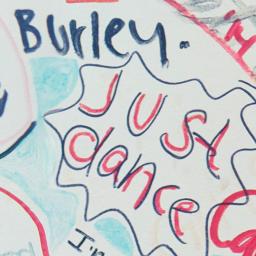 Burley.
Just
dance
I'm